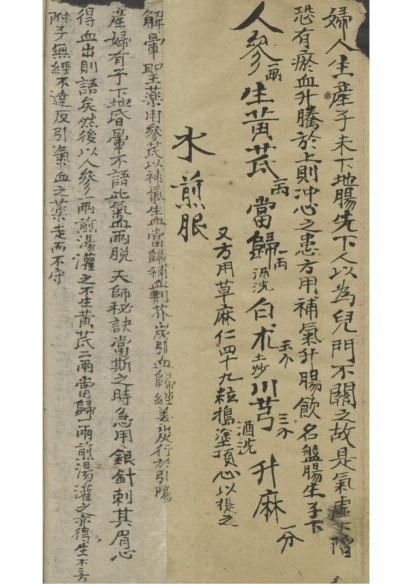 婦人生產子未下地腸先下人以為兒門不關之故是氣虛下陷
恐有瘀血升騰於上則沖心之患方用補氣升腸飲名盤腸生子下
人參 一兩 生黃芪 一兩 當歸 一兩 酒洗 白朮 五分 土炒 川芎 三分 酒洗 升麻 一分
又方用草麻仁四十九粒搗塗頂心以提之
水煎服
解暈聖藥用參芪以補氣生血當歸補血荊芥炭引血歸經姜炭行於引陽
產婦有子下地昏暈不語此氣血兩脫 天師秘訣當斯之時急用銀針刺其眉心
得血出則語矣然後以人參一兩煎湯灌之不生黃芪二兩當歸一兩煎湯灌之亦得生不云
附子無經不達反引氣血之藥走而不守